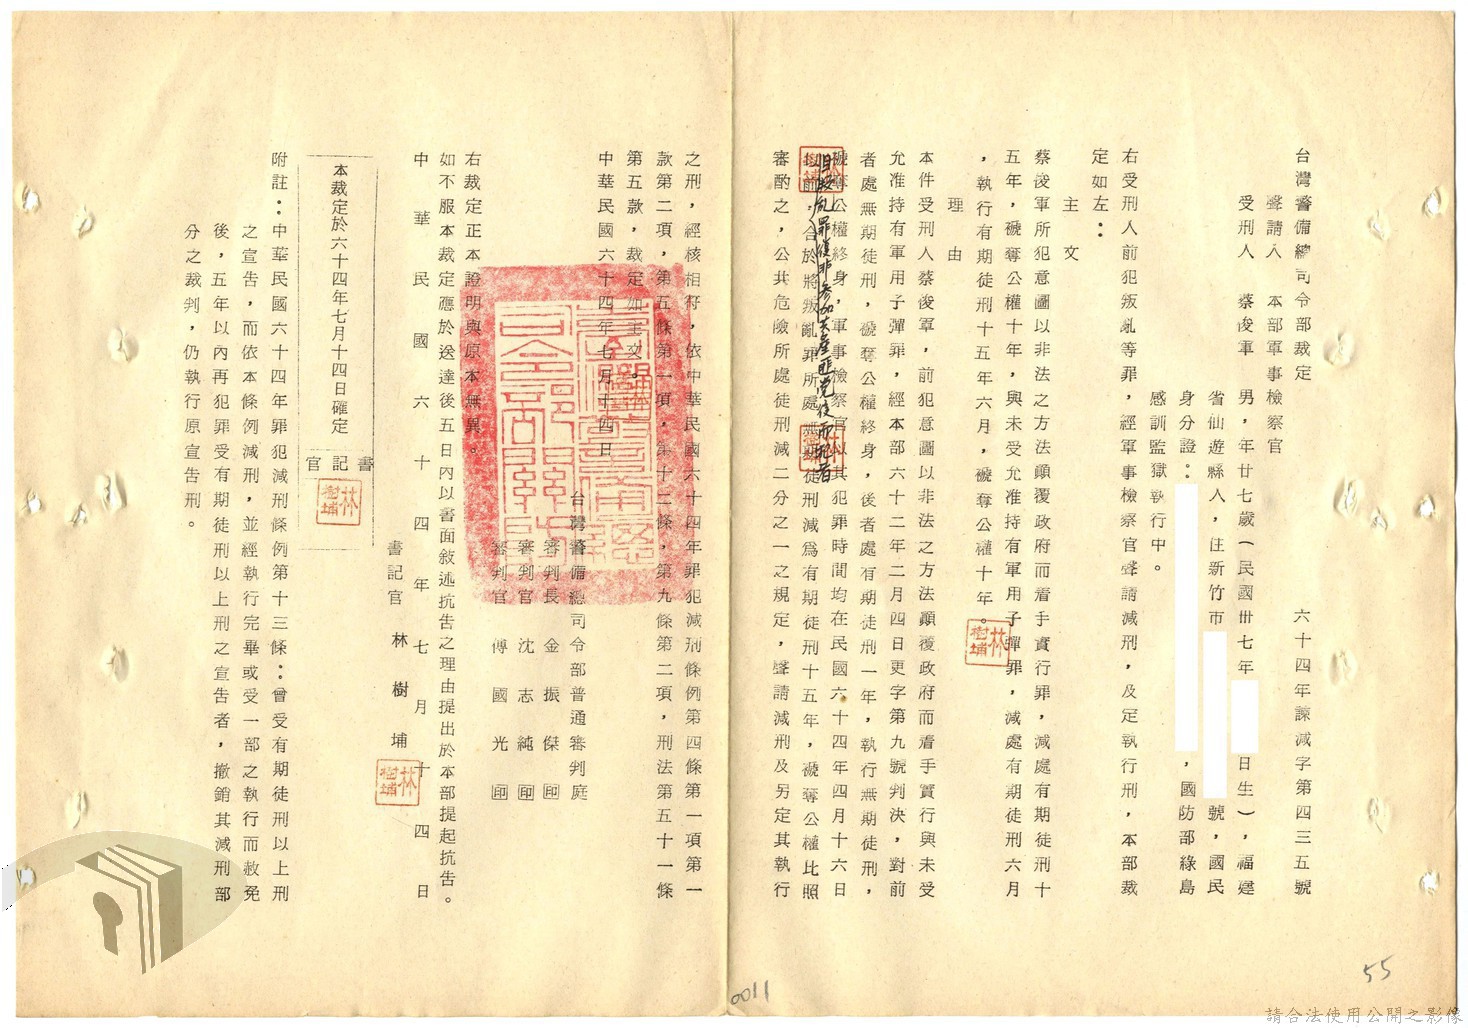 台灣警備總司令部裁定
六十四年諫減字第四三五號
聲請人　本部軍事檢察官
受刑人　蔡俊軍　男，年廿七歲（民國卅七年　　日生），福建
省仙遊縣人，住新竹市　　號，國民
身分證：　　，國防部綠島
感訓監獄執行中。
右受刑人前犯叛亂等罪，經軍事檢察官聲請減刑，及定執行刑，本部裁
定如左：
主文
蔡俊軍所犯意圖以非法之方法顛覆政府而着手實行罪，減處有期徒刑十
五年，褫奪公權十年，與未受允准持有軍用子彈罪，減處有期徒刑六月
，執行有期徒刑十五年六月，褫奪公權十年。
理由
本件受刑人蔡俊軍，前犯意圖以非法之方法顛覆政府而着手實行與未受
允准持有軍用子彈罪，經本部六十二年二月四日更字第九號判決，對前
者處無期徒刑，褫奪公權終身，後者處有期徒刑一年，執行無期徒刑，
褫奪公權終身，軍事檢察官以其犯罪時間均在民國六十四年四月十六日
以前，合於將叛亂罪所處無期徒刑減為有期徒刑十五年，褫奪公權比照
審酌之，公共危險所處徒刑減二分之一之規定，聲請減刑及另定其執行
之刑，經核相符，依中華民國六十四年罪犯減刑條例第四條第一項第一
款第二項，第五條第一項，第十二條，第九條第二項，刑法第五十一條
第五款，裁定如主文。
中華民國六十四年七月十四日
台灣警備總司令部普通審判庭
審判長　金振傑　印
審判官　沈志純　印
審判官　傅國光　印
右裁定正本證明與原本無異。
如不服本裁定應於送達後五日內以書面敘述抗告之理由提出於本部提起抗告。
中華民國六十四年七月十四日
書記官　林樹埔
林樹埔
本裁定於六十四年七月十四日確定
書記官
林樹埔
附註：中華民國六十四年罪犯減刑條例第十三條：曾受有期徒刑以上刑
之宣告，而依本條例減刑，並經執行完畢或受一部之執行而赦免
後，五年以內再犯罪受有期徒刑以上刑之宣告者，撤銷其減刑部
分之裁判，仍執行原宣告刑。
0011
55
請合法使用公開之影像